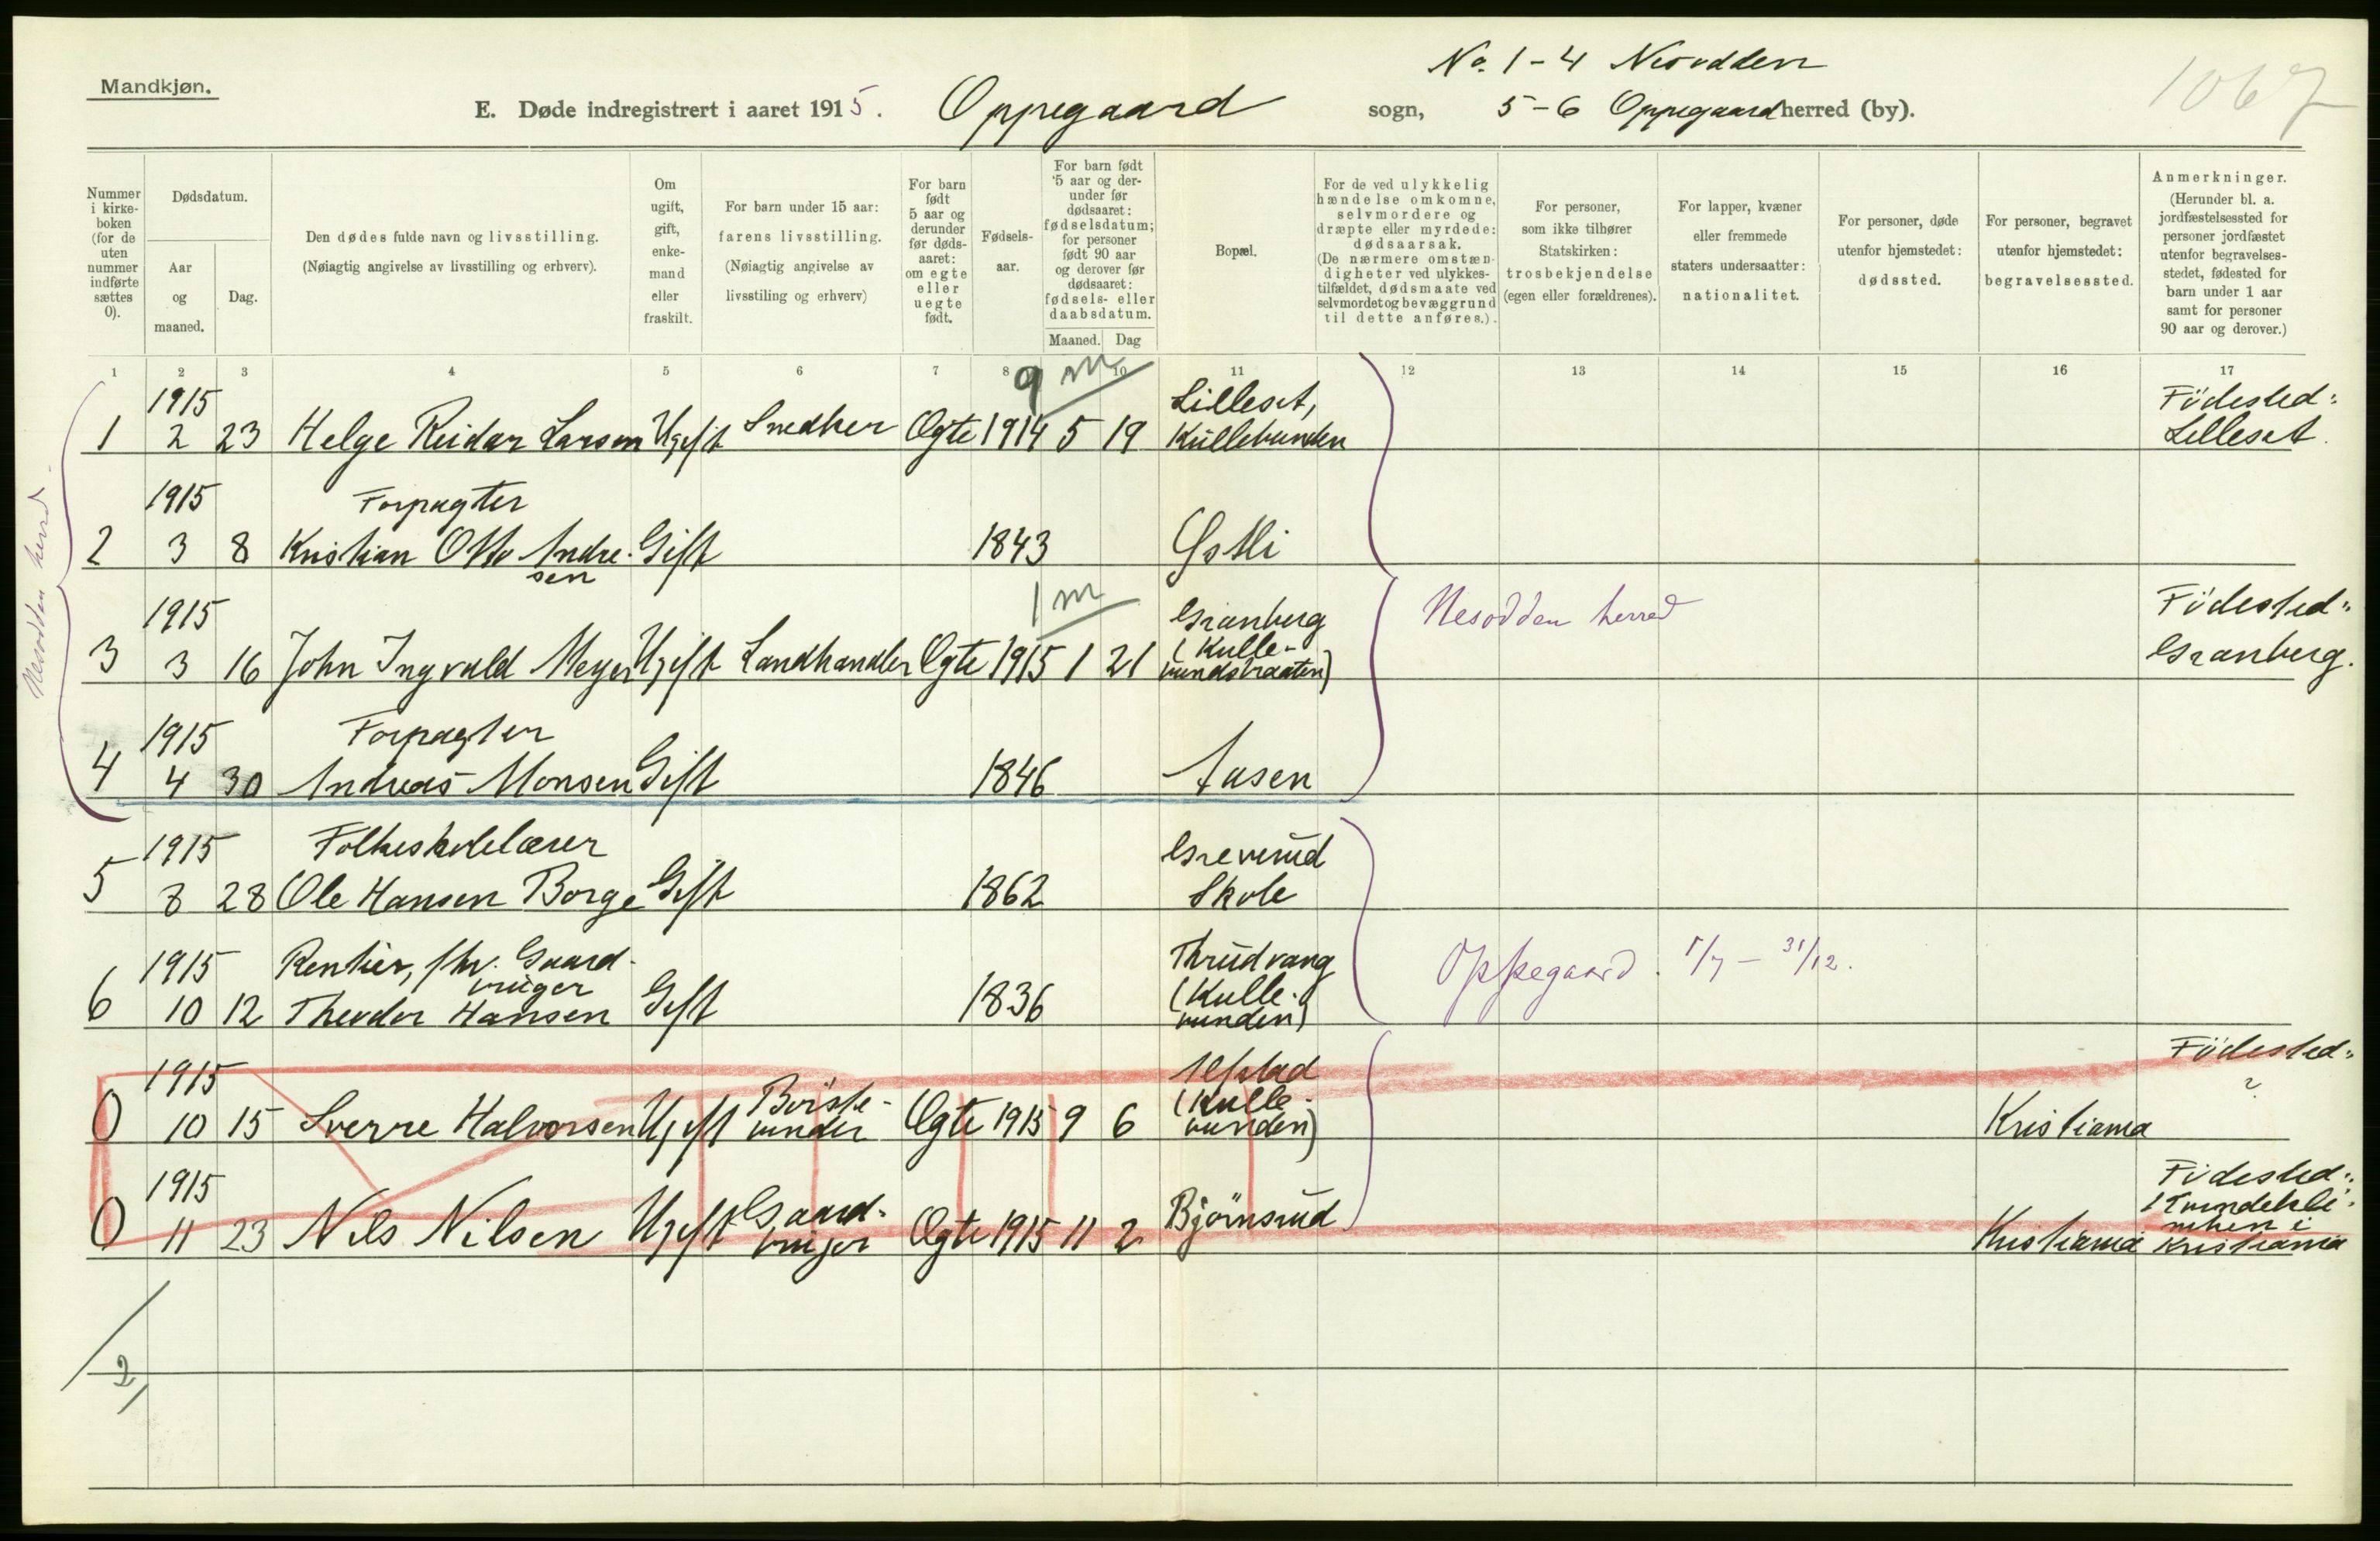 Mandkjøn.
No. 1-4 Nesodden
1067
E. Døde indregistrert i aaret 1915. Oppegaard sogn, 5-6 Oppegaard herred (by).
Nummer i kirkeboken (for de uten nummer indførte sættes 0).
Dødsdatum.
Aar og maaned.
Dag.
Den dødes fulde navn og livsstilling.
(Nøiagtig angivelse av livsstilling og erhverv).
Om ugift, gift, enkemand eller fraskilt.
For barn under 15 aar: farens livsstilling.
(Nøiagtig angivelse av livsstiling og erhverv)
For barn født 5 aar og derunder før dødsaaret: om egte eller uegte født.
Fødselsaar.
For barn født 5 aar og derunder før dødsaaret: fødselsdatum; for personer født 90 aar og derover før dødsaaret: fødsels- eller daabsdatum.
Maaned. Dag
Bopæl.
For de ved ulykkelig hændelse omkomne, selvmordere og dræpte eller myrdede: dødsaarsak. (De nærmere omstændigheter ved ulykkestilfældet, dødsmaate ved selvmordet og bevæggrund til dette anføres.).
For personer, som ikke tilhører Statskirken: trosbekjendelse (egen eller forældrenes).
For lapper, kvæner eller fremmede staters undersaatter: nationalitet.
For personer, døde utenfor hjemstedet: dødssted.
For personer, begravet utenfor hjemstedet: begravelsessted.
Anmerkninger.
(Herunder bl. a. jordfæstelsessted for personer jordfæstet utenfor begravelsesstedet, fødested for barn under 1 aar samt for personer 90 aar og derover.)
1 2 3 4 5 6 7 8 10 11 12 13 14 15 16 17
9 m
1915 Lilleset, Födested:
1 2 23 Helge Reidar Larsen Ugift Snedker Ægte 1914 5 19 Kullebunden Lilleset.
1915 Forpagter
2 3 8 Kristian Otto Andresen Gift 1843 Østli
1 m
1915 Granberg Födested:
3 3 16 John Ingvald Meyer Ugift Landhandler Ægte 1915 1 21 (Kullebundstraaten) Granberg.
Nesodden herred
Nesodden herred
1915 Forpagter
4 4 30 Andreas Monsen Gift 1846 Aasen
1915 Folkeskolelærer Greverud
5 8 28 Ole Hansen Borge Gift 1862 Skole
1915 Rentier, fhv. Gaardbruger Thrudvang
6 10 12 Theodor Hansen Gift 1836 (Kullebunden)
Oppegaard. 1/7 - 31/12.
1915 (Kullebunden) Födested:
?
0 10 15 Sverre Halvorsen Ugift Börstebinder Ægte 1915 9 6 Kristiania
1915 Födested:
0 11 23 Nils Nilsen Ugift Gaardbruger Ægte 1915 11 2 Björnsrud Kristiania
i Kristiania
2